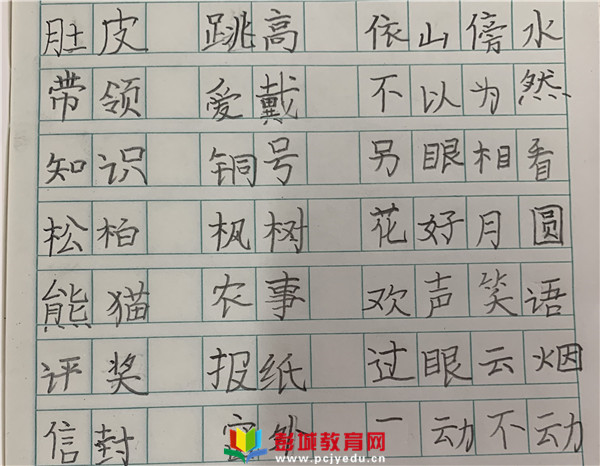 肚皮 跳高 依山傍水
带领 爱戴 不以为然
知识 铜号 另眼相看
松柏 枫树 花好月圆
熊猫 农事 欢声笑语
评奖 报纸 过眼云烟
信封 外 一动不动
彭城教育网
www.pcjyedu.cn